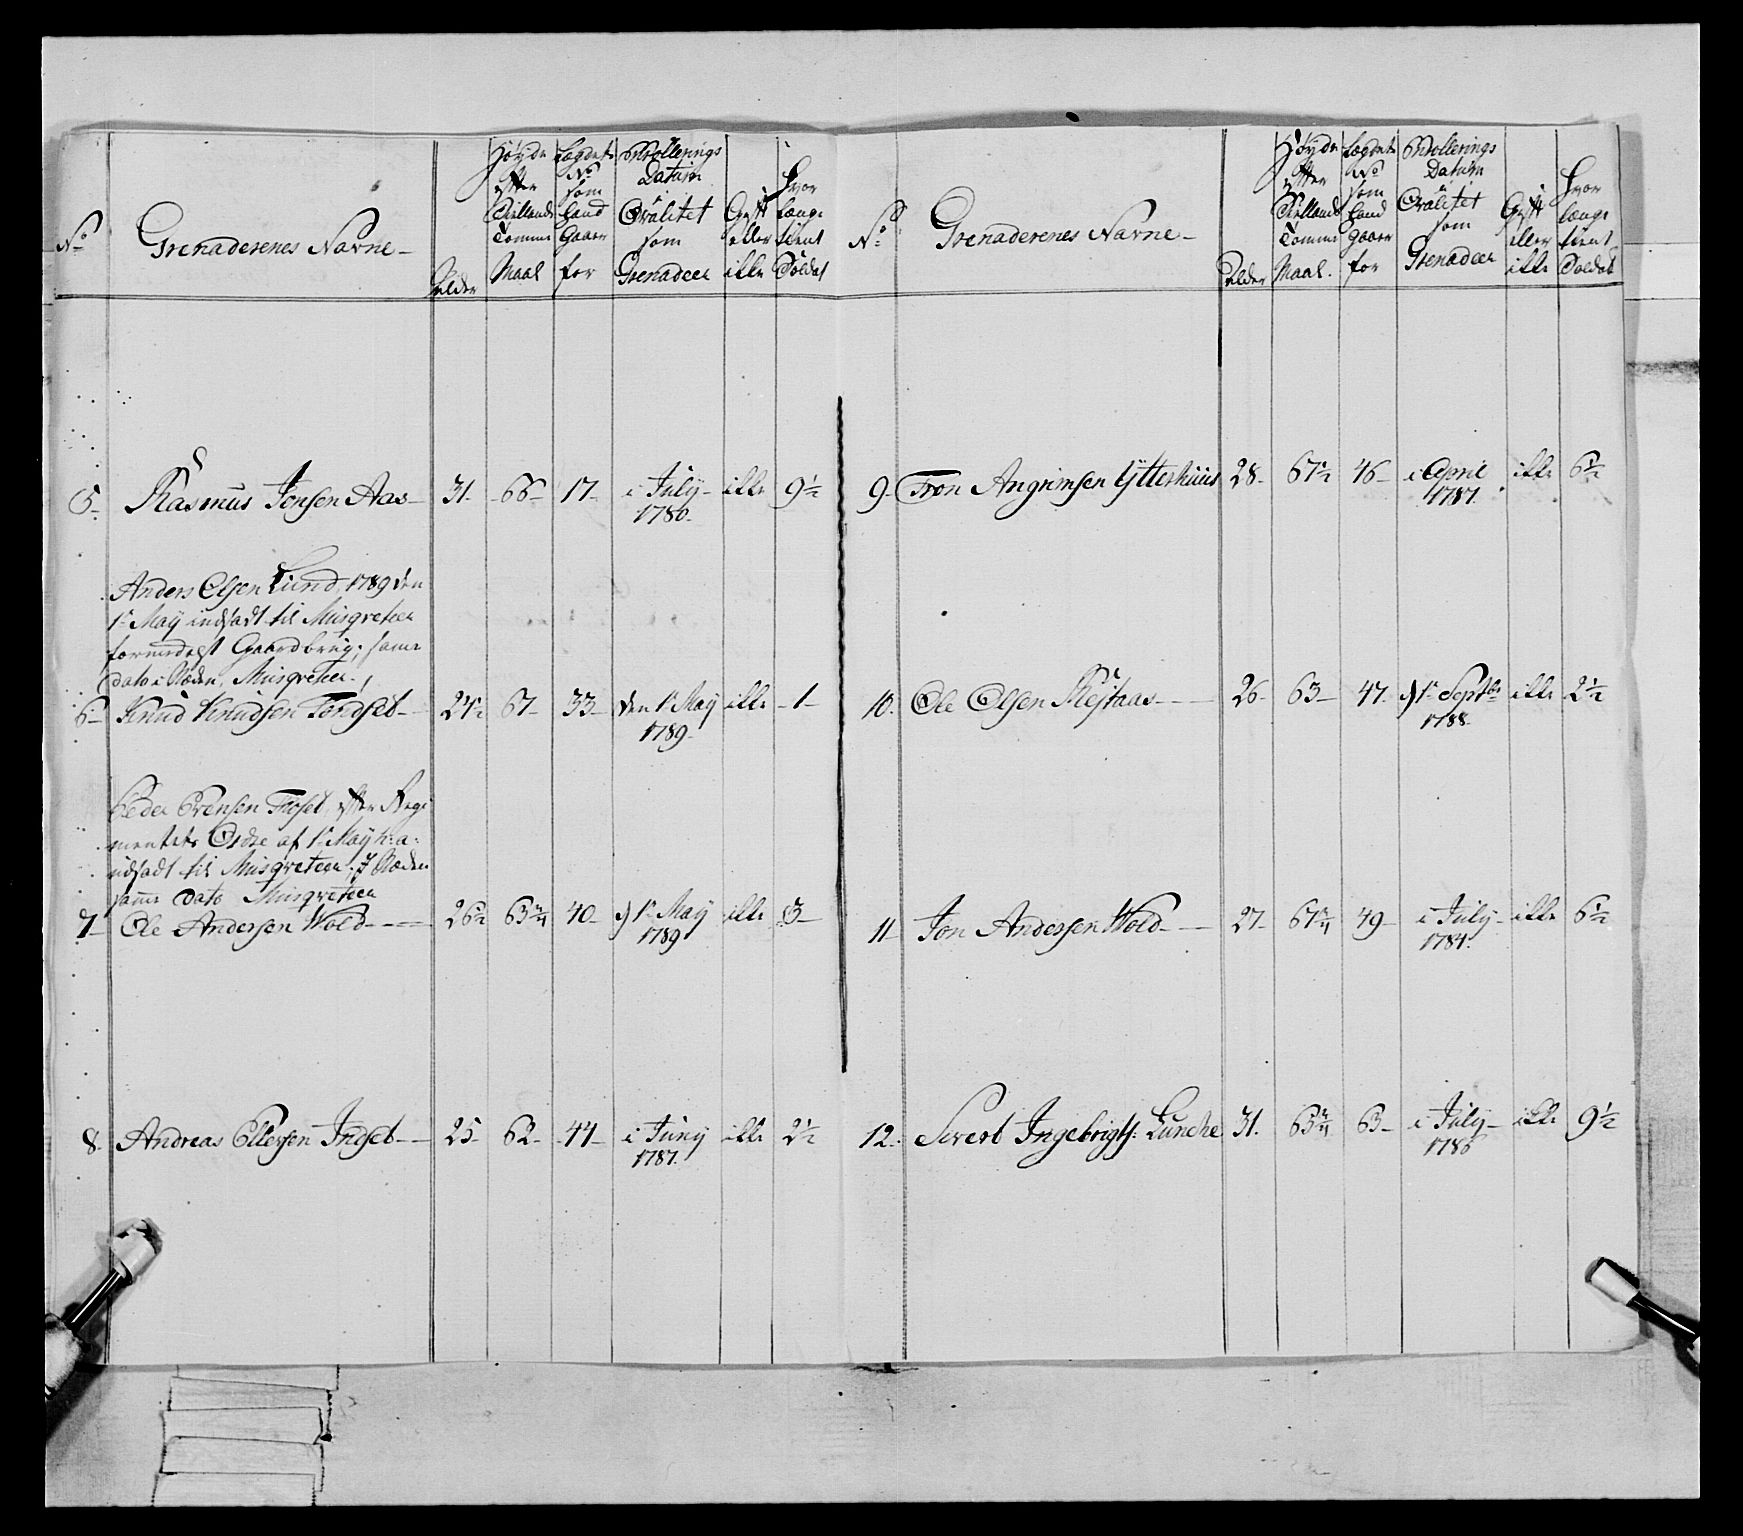 No
Grenaderenes Navne
Alder
Høyde efter Siellands Tomme Maal
Lægdets No som hand gaaer for
Enrollerings Datum i Qvalitet som Grenadeer
Gift eller ikke
Hvor længe tient Soldat
5 Rasmus Jonsen Aas 31. 66 17 i July 1780. ikke 9½
Anders Olsen Lund, 1789 den
1te May indsadt til Musqveteer
formedelst Gaardbrug; samme
dato i Stæden, Musqveteer
6 Knud Knudsen Tondset 24½ 67 33 den 1te May 1789 ikke 1
Peder Evensen Floset, efter Regi
mentets Ordre af 1te May h: a:
udsadt til Musqveteer; I Stæden
samme dato Musqveteer
7 Ole Andersen Wold 26½ 63¾ 40 d 1te May 1789 ikke 3
8 Andreas Ellefsen Indset 25 62 44 i Juny 1787. ikke 2½
No
Grenaderenes Navne
Alder
Høyde efter Siellands Tomme Maal.
Lægdets No som hand gaaer for
Enrollerings Datum i Qvalitet som Grenadeer
Gift eller ikke
Hvor længe tient Soldat
9 Tron Angrimsen Ytterhuus 28 67½ 46 i April 1787. ikke 6½
10. Ole Olsen 26 63 47 d 1te Septbr 1788 ikke 2½
11 Jon Andersen Wold 27 67¾ 49 i July 1784. ikke 6½
12. Sivert Ingebrigts: Lunche 31. 63¾ 63 i July 1780 ikke 9½